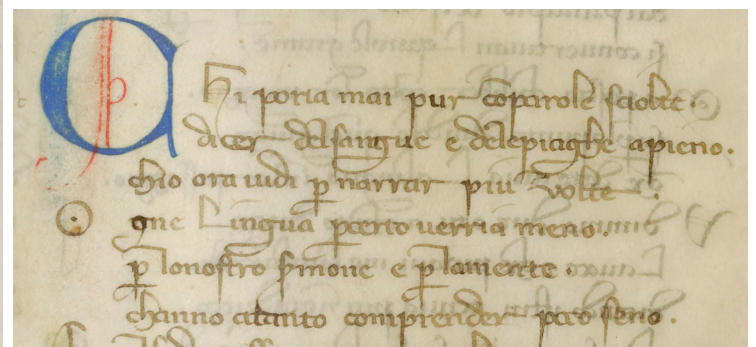 Chi poria mai pur cō parole sciolte.
dicer del sangue e dele piaghe apieno.
chio ora uidi ꝑ narrar piu uolte.
Ogne Lingua ꝑcerto uerria meno.
ꝑ lonostro s̄mone e ꝑ lamente.
channo atanto comprender poco seno.